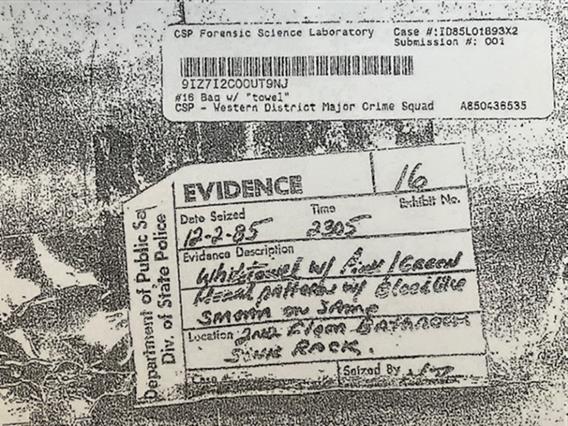 CSP Forensic Science Laboratory Case #:ID85L01893X2
Submission #: 001
9IZ7I2COOUT9NJ
#16 Bag w/ "towel"
CSP - Western District Major Crime Squad A850436535
EVIDENCE 16
Exhibit No.
Date Seized Time
12-2-85 2305
Evidence Description
White towel w/ Pink/Green
pattern w/ Bloodlike
on same
Location 2nd Floor Bathroom
Sink Rack.
Seized By
Department of Public Sa
Div. of State Police